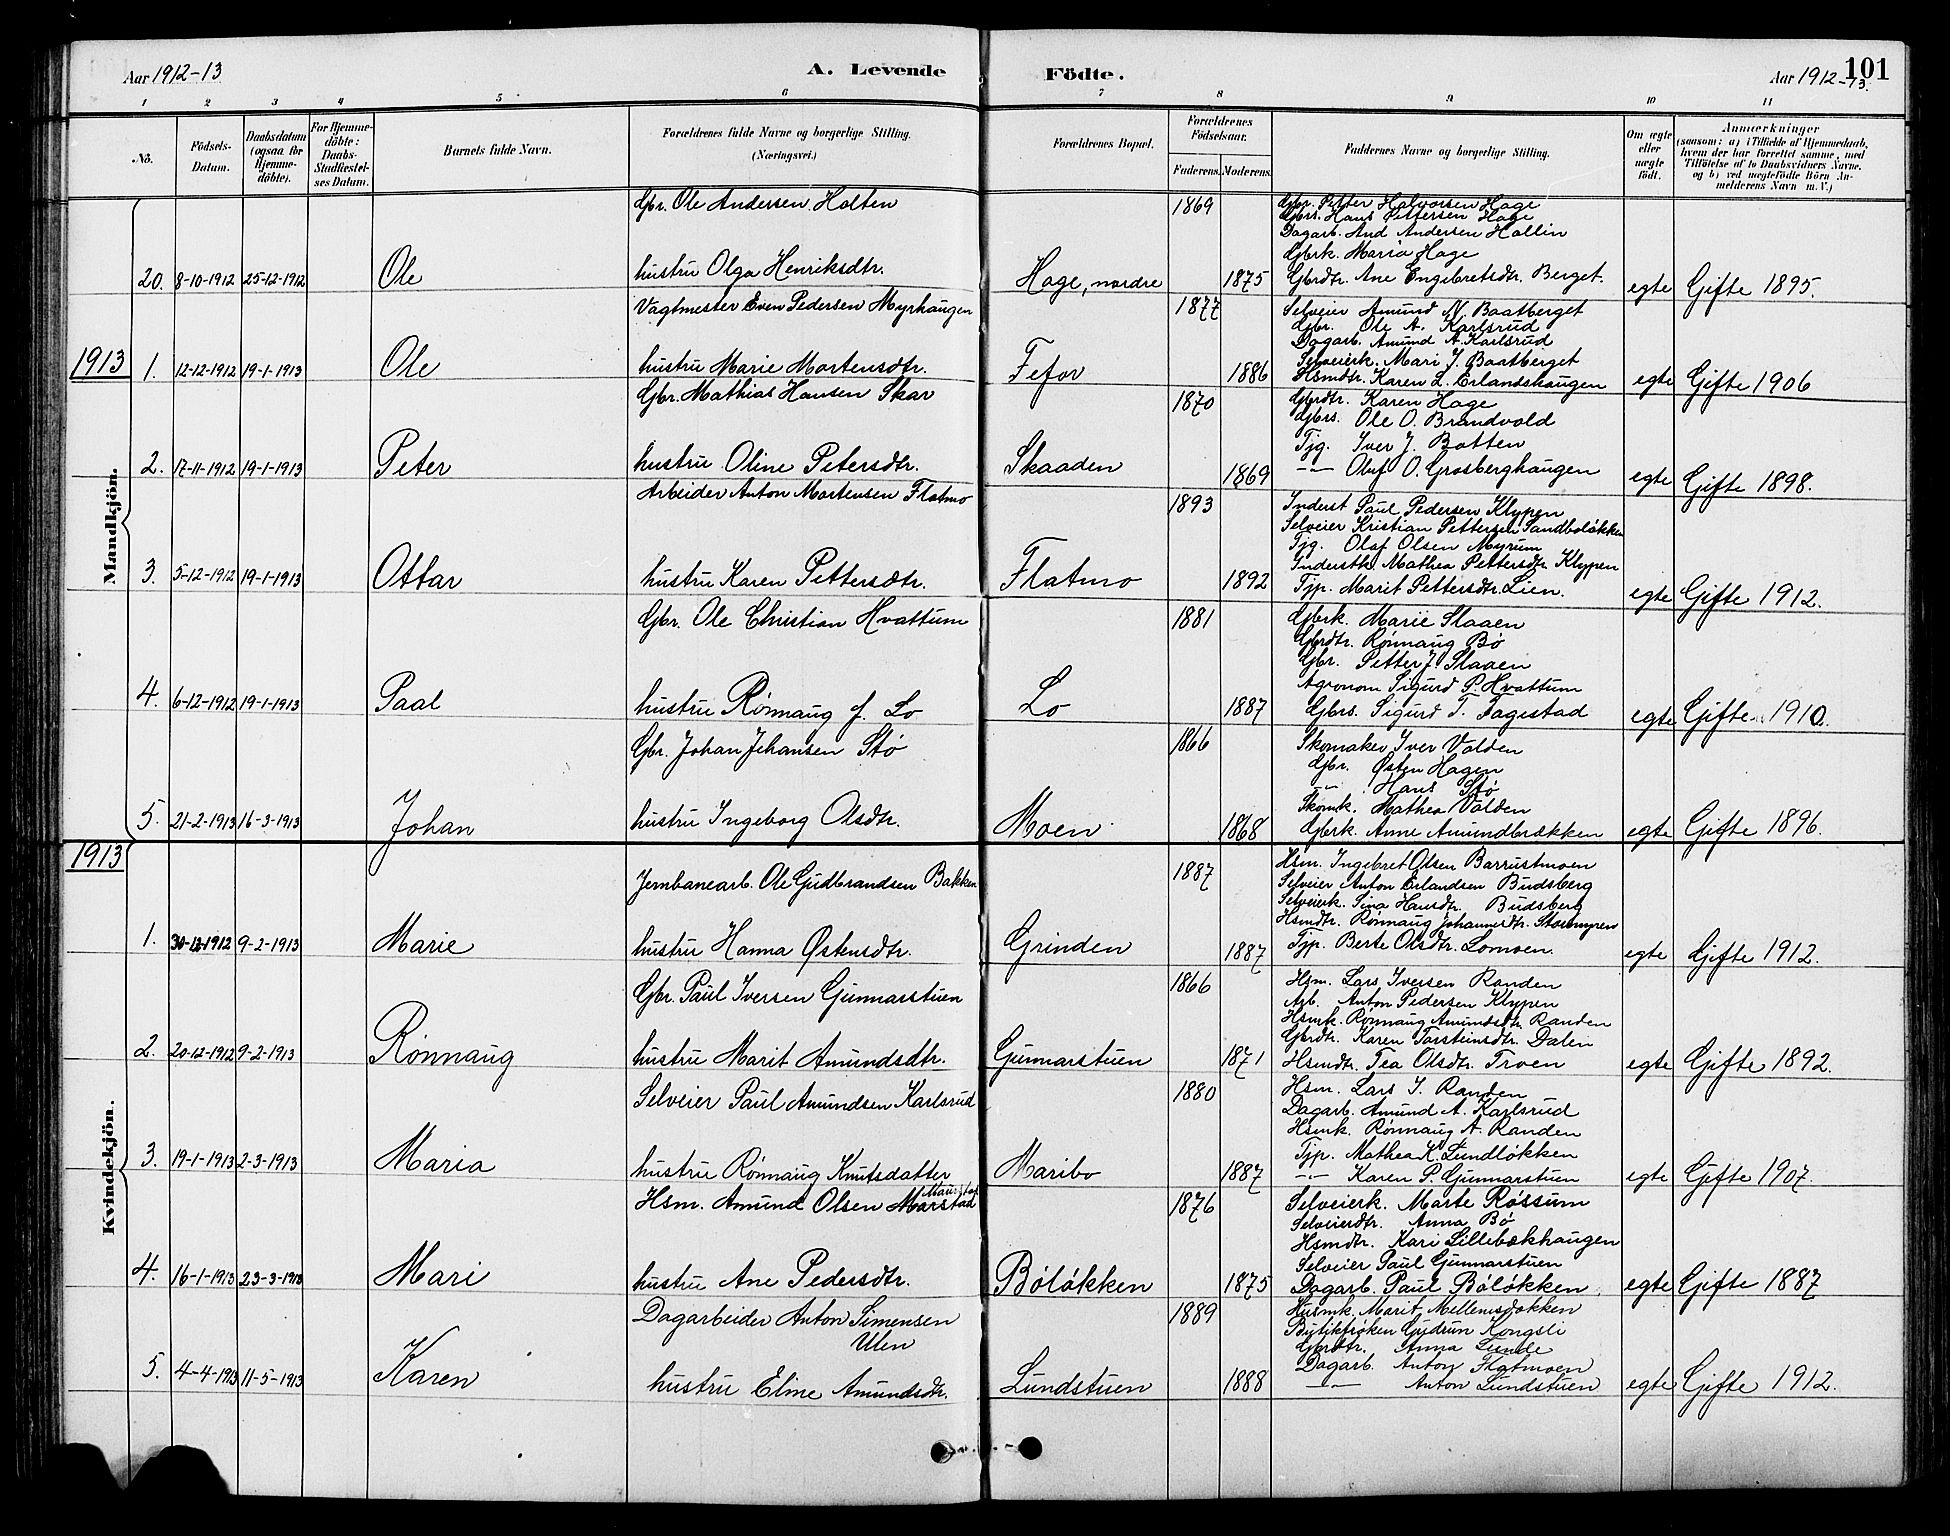 Aar 1912-13
A. Levende
Födte.
Aar 1912-13.
101
1 2 3 4 5 6 7 8 9 10 11
No.
Födsels-Datum.
Daabsdatum (ogsaa for Hjemme-döbte).
For Hjemme-döbte: Daabs-Stadfæstel-ses Datum.
Barnets fulde Navn.
Forældrenes fulde Navne og borgerlige Stilling.
(Næringsvei.)
Forældrenes Bopæl.
Forældrenes Födselsaar.
Faderens. Moderens.
Faddernes Navne og borgerlige Stilling.
Om ægte eller uægte födt.
Anmærkninger
(saasom: a) i Tilfælde af Hjemmedaab, hvem der har forrettet samme, med Tilföielse af to Daabsvidners Navne, og b) ved uægtefödte Börn An-melderens Navn m. V.)
Mandkjön.
Gbr. Ole Andersen Holten
1869
Gbr. Petter Halvorsen Hage
Gbrs. Hans Pettersen Hage
Dagarb. And Andersen Hallin
Gbrk. Maria Hage
20. 8-10-1912 25-12-1912 Ole hustru Olga Henriksdtr. Hage, nordre 1875 Gbrdtr. Ane Engebretsdtr. Berget. egte Gifte 1895.
Vagtmester Even Pedersen Myrhaugen
1877
Selveier Amund N. Baatberget
Gbr. Ole A. Karlsrud
Dagarb. Amund A. Karlsrud
Selveierk. Mari J. Baatberget
1913 1. 12-12-1912 19-1-1913 Ole hustru Marie Mortensdtr. Fefor 1886 Hsmdtr. Karen L. Erlandshaugen egte Gifte 1906
Gbr. Mathias Hansen Skar
1870
Gbrdtr. Karen Hage
Gbrs. Ole O. Brandvold
Tjg. Iver J. Botten
2. 17-11-1912 19-1-1913 Peter hustru Oline Petersdtr. Skaaden 1869 -"- Oluf O. Grosberghaugen egte Gifte 1898.
Arbeider Anton Mortensen Flatmo
1893
Inderst Paul Pedersen Klypen
Selveier Kristian Pettersen Sandboløkken
Tjg. Olaf Olsen Myrum
Inderstk. Mathea Pettersdtr. Klypen
3. 5-12-1912 19-1-1913 Ottar hustru Karen Pettersdtr. Flatmo 1892 Tjp. Marit Pettersdtr. Lien. egte Gifte 1912.
Gbr. Ole Christian Hvattum
1881
Gbrk. Marie Slaaen
Gbrdtr. Rønnaug Bø
Gbr. Petter J. Slaaen
Agronom Sigurd P. Hvattum
4. 6-12-1912 19-1-1913 Paal hustru Rønnaug f. Lo Lo 1887 Gbrs. Sigurd T. Fagestad egte Gifte 1910.
Gbr. Johan Johansen Stø
1866
Skomaker Iver Valden
Gbr. Østen Hagen
-"- Hans Stø
Skomk. Mathea Valden
5. 21-2-1913 16-3-1913 Johan hustru Ingeborg Olsdtr. Moen 1868 Gbrk. Anne Amundbrækken egte Gifte 1896.
Kvindekjön.
1913
Jernbanearb. Ole Gudbrandsen Bakken
1887
Hsm. Ingebret Olsen Barrustmoen
Selveier Anton Erlandsen Budsberg
Selveierk. Sina Hansdtr. Budsberg
Hsmdtr. Rønnaug Johannesdtr. Storemyren
1. 30-12-1912 9-2-1913 Marie hustru Hanna Østensdtr. Grinden 1887 Tjp. Berte Olsdtr. Lomoen. egte Gifte 1912.
Gbr. Paul Iversen Gunnarstuen
1866
Hsm. Lars Iversen Randen
Arb. Anton Pedersen Klypen
Hsmk. Rønnaug Amundsdtr. Randen
Gbrdtr. Karen Torsteinsdtr. Dalen
2. 20-12-1912 9-2-1913 Rønnaug hustru Marit Amundsdtr. Gunnarstuen 1871 Hsmdtr. Tea Olsdtr. Troen egte Gifte 1892.
Selveier Paul Amundsen Karlsrud
1880
Hsm. Lars I. Randen
Dagarb. Amund A. Karlsrud
Hsmk. Rønnaug A. Randen
Tjp. Mathea K. Lundløkken
3. 19-1-1913 2-3-1913 Maria hustru Rønnaug Knutsdatter Maribo 1887 -"- Karen P. Gunnarstuen egte Gifte 1907.
Hsm. Amund Olsen Marstad
1876
Selveierk. Marte Røssum
Selveierdtr. Anna Bø
Hsmdtr. Kari Lillebækhaugen
Selveier Paul Gunnarstuen
4. 16-1-1913 23-3-1913 Mari hustru Ane Pedersdtr. Bøløkken 1875 Dagarb. Paul Bøløkken egte Gifte 1887
Dagarbeider Anton Simensen
Ulen
1889
Husmk. Marit Mellemsdokken
Butikfrøken Gudrun Kongsli
Gbrdtr. Anna Lunde
Dagarb. Anton Flatmoen
5. 4-4-1913 11-5-1913 Karen hustru Eline Amundsdtr. Lundstuen 1888 -"- Anton Lundstuen egte Gifte 1912.